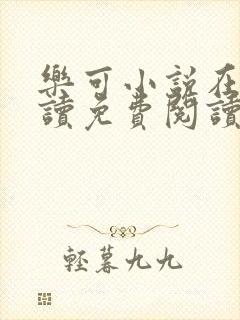 樂可小說在
讀免費閱讀
輕暮九九